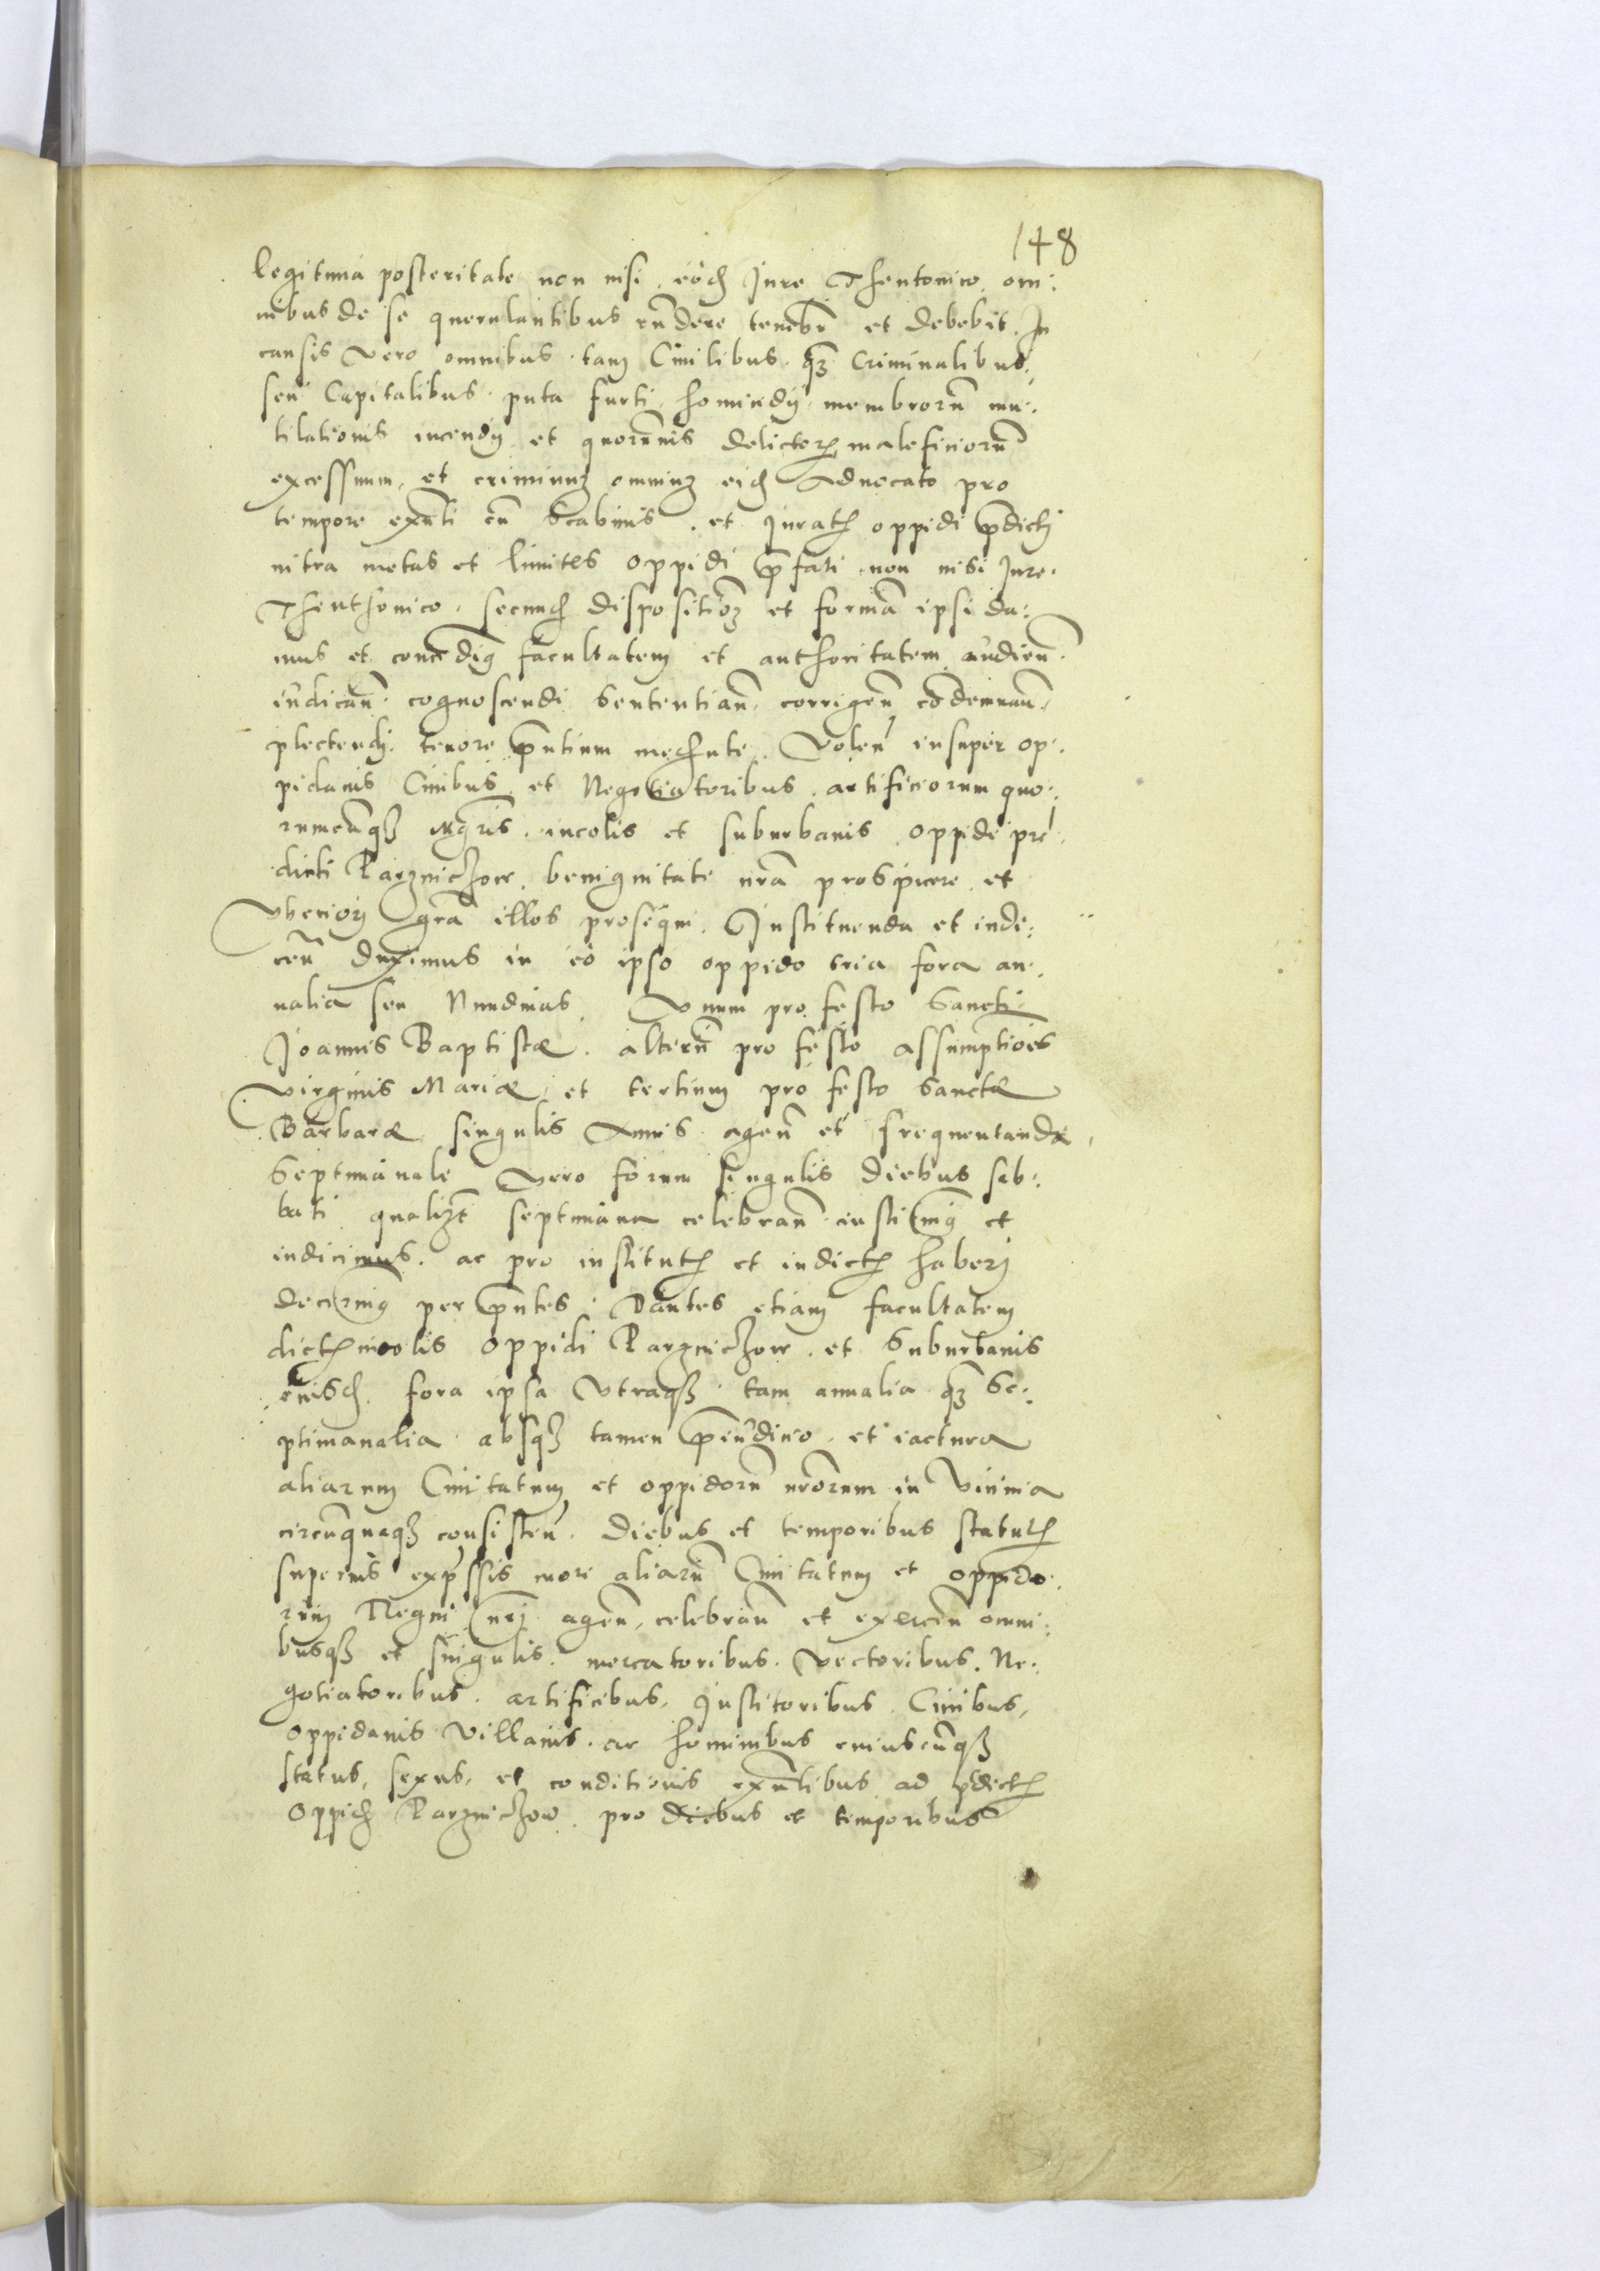 148
legitima posteritate non nisi eod Jure Theutonico om:
nibus de se querulantibus rñdere tenebr̃ et debebit. In
causis vero omnibus tam Ciuilibus qȝ Criminalibus,
seu Capitalibus puta furti, homicidij membrorũ mu:
tilationis incendij et quorũuis delictorȝ maleficiorũ
excessuum, et criminuȝ omniuȝ eid Aduocato pro
tempore exñti cũ Scabinis, et Juratȝ oppidi p̃dicti
intra metas et limites oppidi p̃fati non nisi Jure.
Theuthonico, secund dispositiõȝ et formã ipsi da:
mus et concedimꝯ facultatem et authoritatem audien̄
iudican̄ cognoscendi sententian̄, corrigen̄ cõdemnan̄,
plectendi, tenore p̃ntium mediante. Volen̄ insuper op:
pidanis Ciuibus et Negotiatoribus artificiorum quo:
rumcũqȝ mgr̃is, incolis et suburbanis oppidi pre
dicti Parzniczow, benignitate nrã prospicere, et
vberiorj gr̃a illos prosequi. Instituenda et indi:
cen̄ duximus in eo ipso oppido tria fora an:
nualia seu Nundinas, Vnum pro festo Sancti
Joannis Baptistæ. alterũ pro festo assumptiõis
virginis Mariæ, et tertium pro festo Sanctæ
Barbaræ singulis Annis agen̄ et frequentanda,
Septimanale vero forum singulis diebus sab:
bati qualizt septimana celebran̄ instituimꝯ et
indicimus. ac pro institutȝ et indictȝ haberj
decernimꝯ per p̃ntes. Dantes etiam facultatem
dictȝ incolis oppidi Parzniczow et Suburbanis
eiusd. fora ipsa vtraqȝ tam annalia qȝ Se:
ptimanalia absqȝ tamen p̃iudicio et iactura
aliarum Ciuitatum et oppidorũ nr̃orum in vicinia
circũquaqȝ consisten̄. diebus et temporibus statutȝ
superius exp̃ssis more aliarũ Ciuitatum et oppido
rum Regni nr̃j agen̄, celebran̄ et exercen̄ omni:
busqȝ et singulis, mercatoribus, vectoribus, Ne:
gotiatoribus, artificibus, Institoribus Ciuibus,
oppidanis villanis, ac hominibus cuiuscũqȝ
status, sexus, et conditionis exñtibus ad p̃dictȝ
oppid Parzniczow pro diebus et temporibus